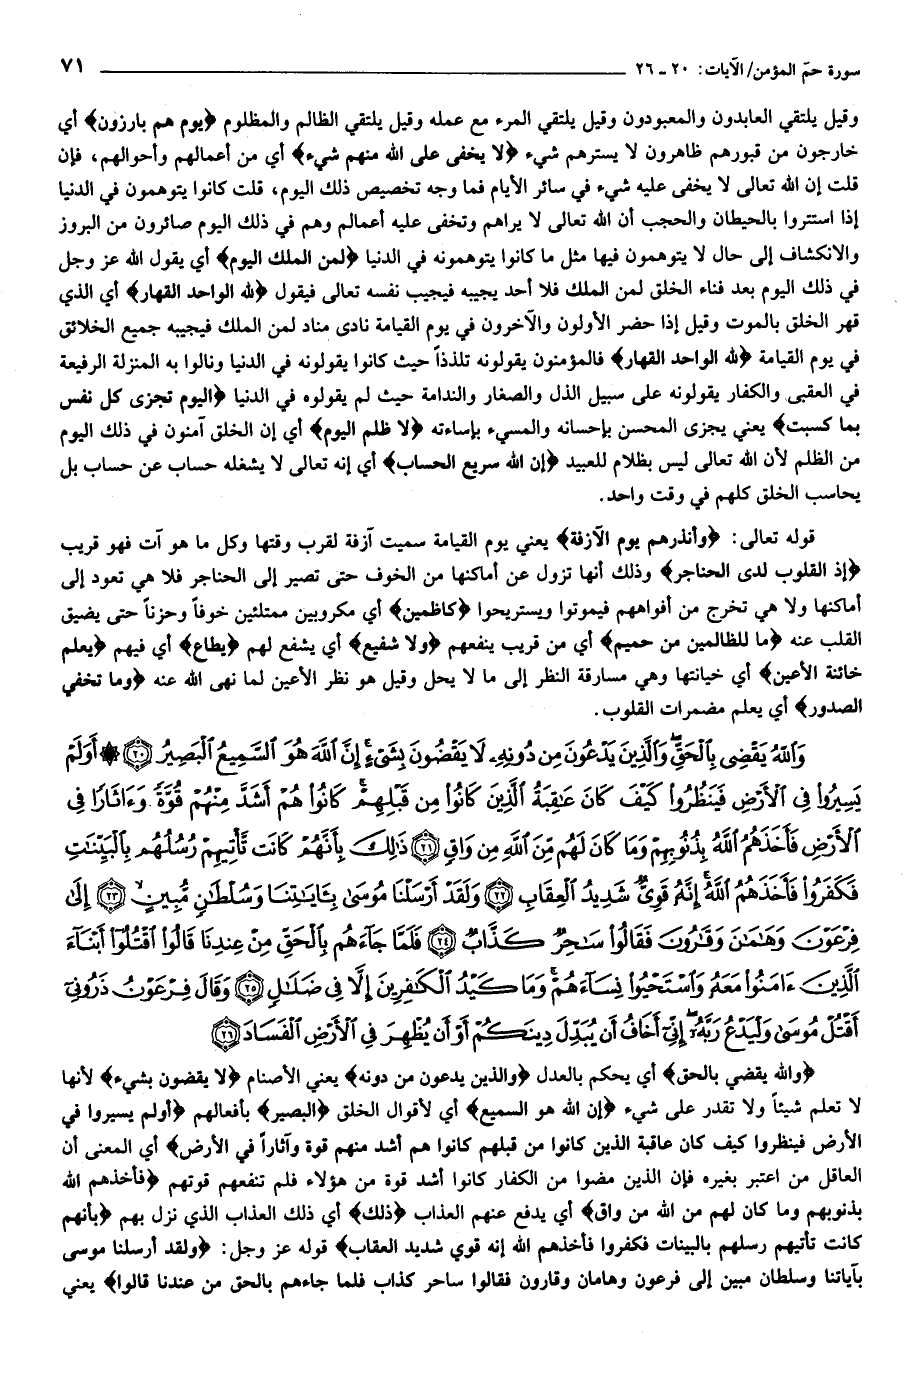 سورة حمّ المؤمن/ الآيات: ٢٠ ـ ٢٦ ٧١
وقيل يلتقي العابدون والمعبودون وقيل يلتقي المرء مع عمله وقيل يلتقي الظالم والمظلوم ﴿يوم هم بارزون﴾ أي
خارجون من قبورهم ظاهرون لا يسترهم شيء ﴿لا يخفى على الله منهم شيء﴾ أي من أعمالهم وأحوالهم، فإن
قلت إن الله تعالى لا يخفى عليه شيء في سائر الأيام فما وجه تخصيص ذلك اليوم، قلت كانوا يتوهمون في الدنيا
إذا استتروا بالحيطان والحجب أن الله تعالى لا يراهم وتخفى عليه أعمالم وهم في ذلك اليوم صائرون من البروز
والانكشاف إلى حال لا يتوهمون فيها مثل ما كانوا يتوهمونه في الدنيا ﴿لمن الملك اليوم﴾ أي يقول الله عز وجل
في ذلك اليوم بعد فناء الخلق لمن الملك فلا أحد يجيبه فيجيب نفسه تعالى فيقول ﴿لله الواحد القهار﴾ أي الذي
قهر الخلق بالموت وقيل إذا حضر الأولون والآخرون في يوم القيامة نادى مناد لمن الملك فيجيبه جميع الخلائق
في يوم القيامة ﴿لله الواحد القهار﴾ فالمؤمنون يقولونه تلذذاً حيث كانوا يقولونه في الدنيا ونالوا به المنزلة الرفيعة
في العقبى والكفار يقولونه على سبيل الذل والصغار والندامة حيث لم يقولوه في الدنيا ﴿اليوم تجزى كل نفس
بما كسبت﴾ يعني يجزى المحسن بإحسانه والمسيء بإساءته ﴿لا ظلم اليوم﴾ أي إن الخلق آمنون في ذلك اليوم
من الظلم لأن الله تعالى ليس بظلام للعبيد ﴿إن الله سريع الحساب﴾ أي إنه تعالى لا يشغله حساب عن حساب بل
يحاسب الخلق كلهم في وقت واحد.
قوله تعالى: ﴿وأنذرهم يوم الآزفة﴾ يعني يوم القيامة سميت آزفة لقرب وقتها وكل ما هو آت فهو قريب
﴿إذ القلوب لدى الحناجر﴾ وذلك أنها تزول عن أماكنها من الخوف حتى تصير إلى الحناجر فلا هي تعود إلى
أماكنها ولا هي تخرج من أفواههم فيموتوا ويستريحوا ﴿كاظمين﴾ أي مكروبين ممتلئين خوفاً وحزناً حتى يضيق
القلب عنه ﴿ما للظالمين من حميم﴾ أي من قريب ينفعهم ﴿ولا شفيع﴾ أي يشفع لهم ﴿يطاع﴾ أي فيهم ﴿يعلم
خائنة الأعين﴾ أي خيانتها وهي مسارقة النظر إلى ما لا يحل وقيل هو نظر الأعين لما نهى الله عنه ﴿وما تخفي
الصدور﴾ أي يعلم مضمرات القلوب.
وَٱللَّهُ يَقْضِى بِٱلْحَقِّ ۖ وَٱلَّذِينَ يَدْعُونَ مِن دُونِهِۦ لَا يَقْضُونَ بِشَىْءٍ ۗ إِنَّ ٱللَّهَ هُوَ ٱلسَّمِيعُ ٱلْبَصِيرُ ۝٢٠ ۞ أَوَلَمْ
يَسِيرُوا۟ فِى ٱلْأَرْضِ فَيَنظُرُوا۟ كَيْفَ كَانَ عَـٰقِبَةُ ٱلَّذِينَ كَانُوا۟ مِن قَبْلِهِمْ ۚ كَانُوا۟ هُمْ أَشَدَّ مِنْهُمْ قُوَّةً وَءَاثَارًا فِى
ٱلْأَرْضِ فَأَخَذَهُمُ ٱللَّهُ بِذُنُوبِهِمْ وَمَا كَانَ لَهُم مِّنَ ٱللَّهِ مِن وَاقٍ ۝٢١ ذَٰلِكَ بِأَنَّهُمْ كَانَت تَّأْتِيهِمْ رُسُلُهُم بِٱلْبَيِّنَـٰتِ
فَكَفَرُوا۟ فَأَخَذَهُمُ ٱللَّهُ ۚ إِنَّهُۥ قَوِىٌّ شَدِيدُ ٱلْعِقَابِ ۝٢٢ وَلَقَدْ أَرْسَلْنَا مُوسَىٰ بِـَٔايَـٰتِنَا وَسُلْطَـٰنٍ مُّبِينٍ ۝٢٣ إِلَىٰ
فِرْعَوْنَ وَهَـٰمَـٰنَ وَقَـٰرُونَ فَقَالُوا۟ سَـٰحِرٌ كَذَّابٌ ۝٢٤ فَلَمَّا جَآءَهُم بِٱلْحَقِّ مِنْ عِندِنَا قَالُوا۟ ٱقْتُلُوٓا۟ أَبْنَآءَ
ٱلَّذِينَ ءَامَنُوا۟ مَعَهُۥ وَٱسْتَحْيُوا۟ نِسَآءَهُمْ ۚ وَمَا كَيْدُ ٱلْكَـٰفِرِينَ إِلَّا فِى ضَلَـٰلٍ ۝٢٥ وَقَالَ فِرْعَوْنُ ذَرُونِىٓ
أَقْتُلْ مُوسَىٰ وَلْيَدْعُ رَبَّهُۥٓ ۖ إِنِّىٓ أَخَافُ أَن يُبَدِّلَ دِينَكُمْ أَوْ أَن يُظْهِرَ فِى ٱلْأَرْضِ ٱلْفَسَادَ ۝٢٦
﴿والله يقضي بالحق﴾ أي يحكم بالعدل ﴿والذين يدعون من دونه﴾ يعني الأصنام ﴿لا يقضون بشيء﴾ لأنها
لا تعلم شيئاً ولا تقدر على شيء ﴿إن الله هو السميع﴾ أي لأقوال الخلق ﴿البصير﴾ بأفعالهم ﴿أولم يسيروا في
الأرض فينظروا كيف كان عاقبة الذين كانوا من قبلهم كانوا هم أشد منهم قوة وآثاراً في الأرض﴾ أي المعنى أن
العاقل من اعتبر بغيره فإن الذين مضوا من الكفار كانوا أشد قوة من هؤلاء فلم تنفعهم قوتهم ﴿فأخذهم الله
بذنوبهم وما كان لهم من الله من واق﴾ أي يدفع عنهم العذاب ﴿ذلك﴾ أي ذلك العذاب الذي نزل بهم ﴿بأنهم
كانت تأتيهم رسلهم بالبينات فكفروا فأخذهم الله إنه قوي شديد العقاب﴾ قوله عز وجل: ﴿ولقد أرسلنا موسى
بآياتنا وسلطان مبين إلى فرعون وهامان وقارون فقالوا ساحر كذاب فلما جاءهم بالحق من عندنا قالوا﴾ يعني